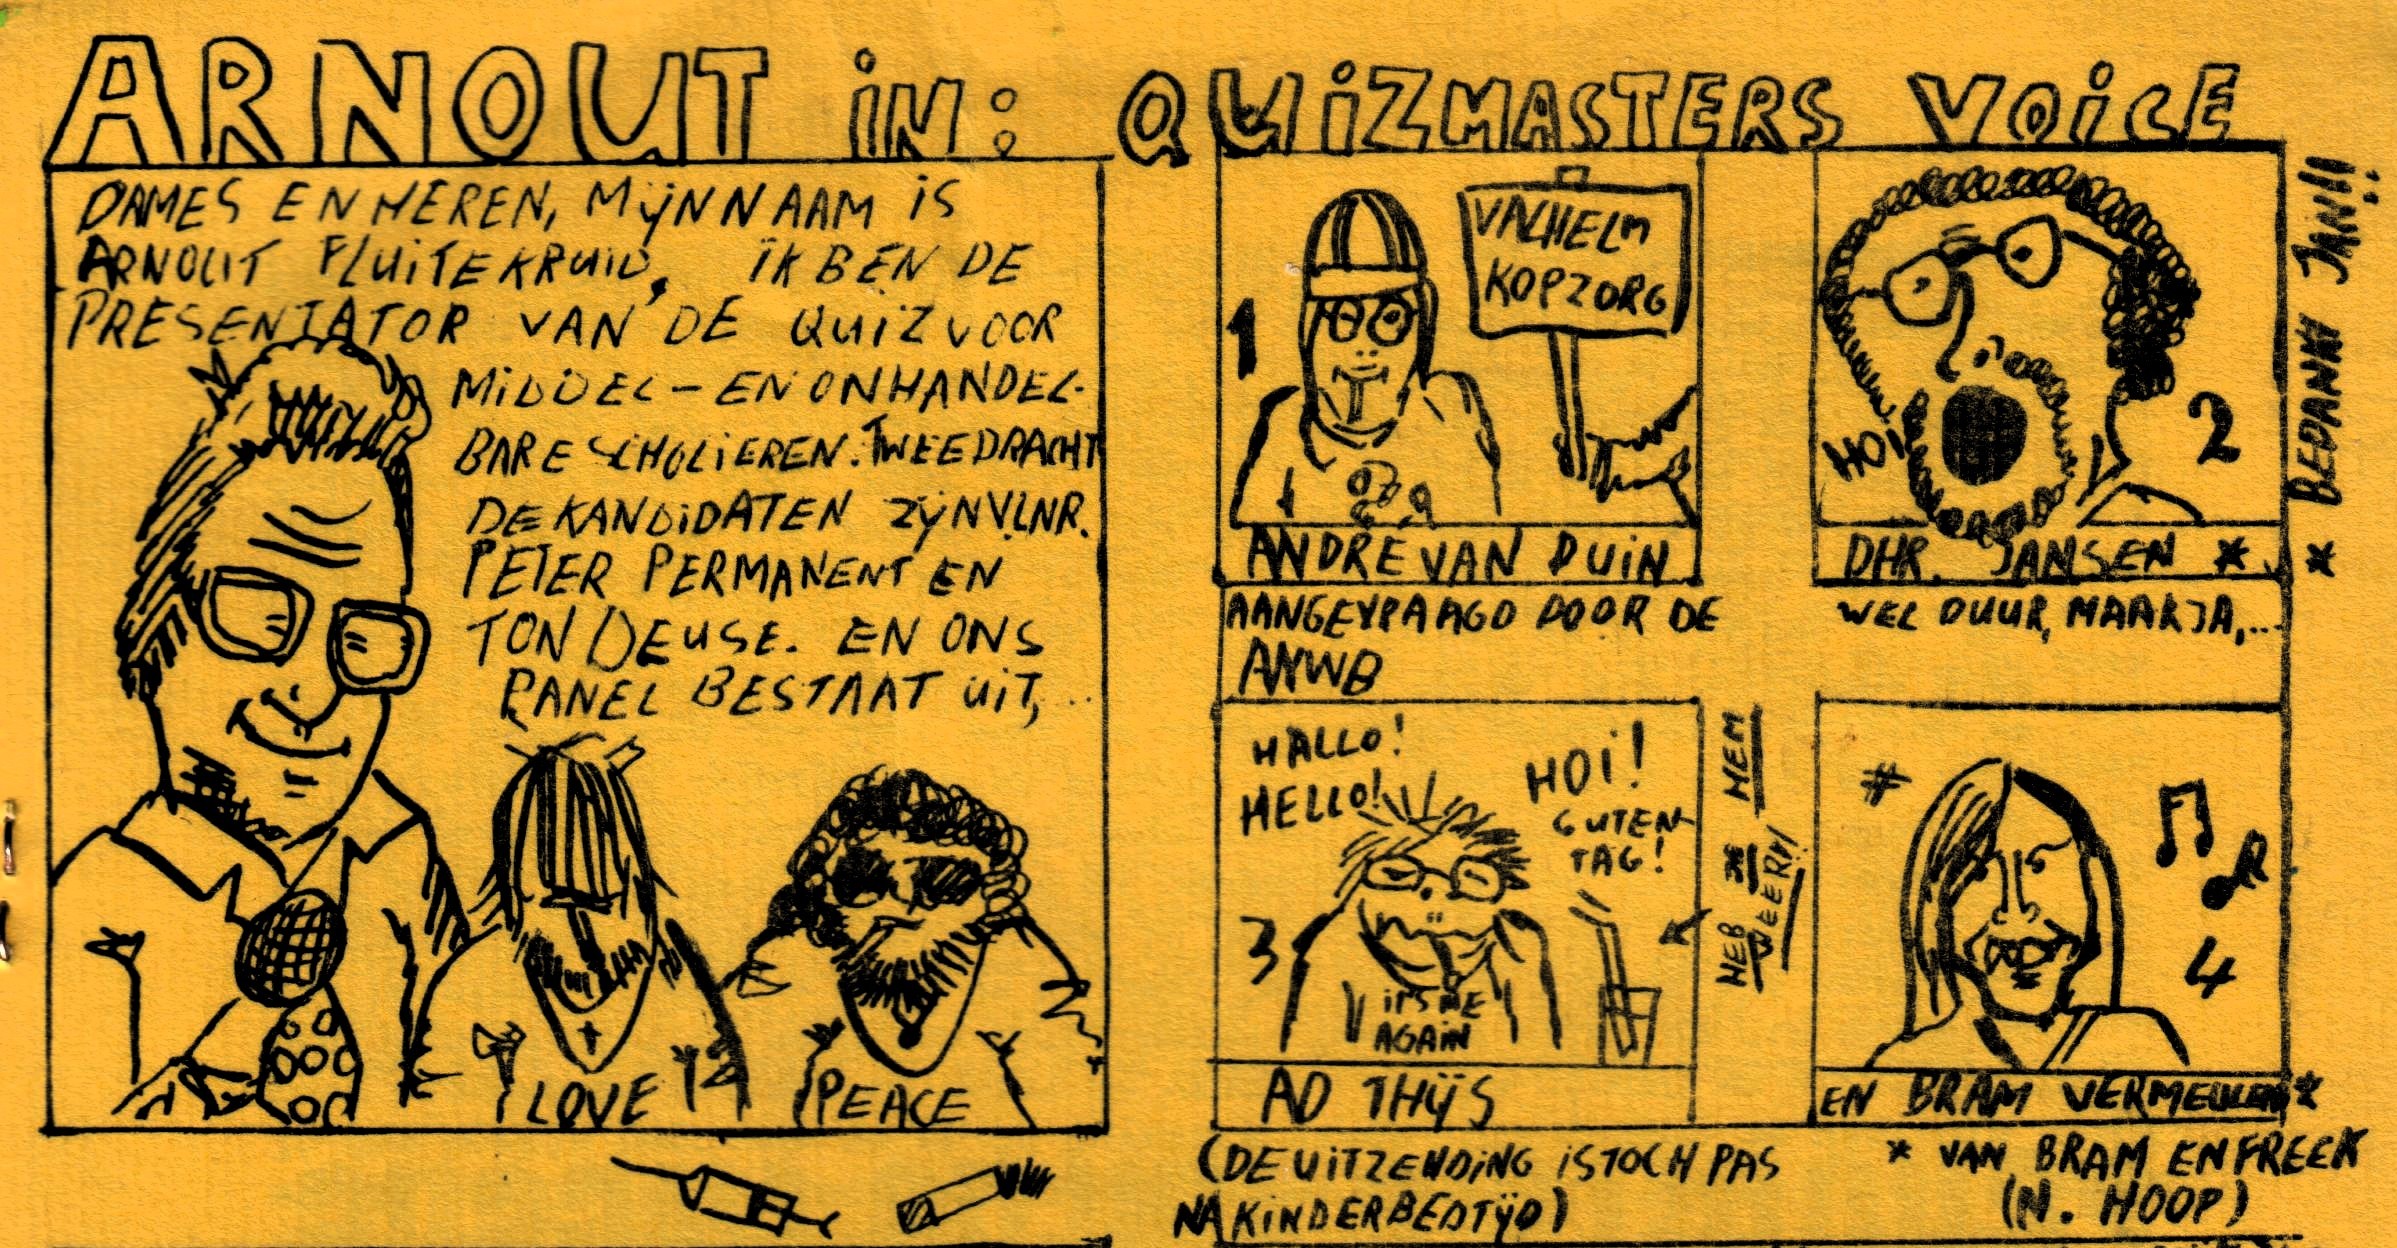 ARNOUT in: QUiZMASTERS VOiCE
DAMES EN HEREN, MIJN NAAM iS
ARNOUT FLUiTEKRUiD, iK BEN DE
PRESENTATOR VAN DE QUiZ VOOR
MiDDEL- EN ONHANDEL-
BARE SCHOLiEREN. TWEEDRACHT
DE KANDiDATEN ZIJN V.L.N.R.
PETER PERMANENT EN
TON DEUSE. EN ONS
PANEL BESTAAT UiT,..
LOVE
PEACE
1
VALHELM
KOPZORG
ANDRE VAN DUiN
AANGEVRAAGD DOOR DE
ANWB
HO!
2
DHR. JANSEN *
WEL DUUR, MAAR JA,...
* BEDANKT JAN!!
HALLO!
HELLO!
HOi!
GUTEN
TAG!
3
iTS ME
AGAiN
AD THIJS
HEB JE HEM
WEER!!
(DE UiTZENDiNG iS TOCH PAS
NA KiNDERBEDTIJD)
4
EN BRAM VERMEULEN*
* VAN BRAM EN FREEK
(N. HOOP)